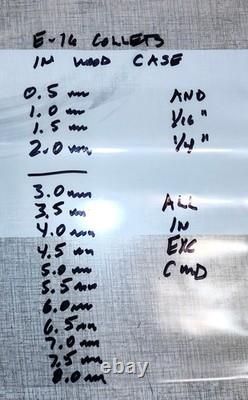 E-16 COLLETS
IN WOOD CASE
0.5 mm AND
1.0 mm 1/16"
1.5 mm 1/4"
2.0 mm
3.0 mm ALL
3.5 mm IN
4.0 mm EXC
4.5 mm CMD
5.0 mm
5.5 mm
6.0 mm
6.5 mm
7.0 mm
7.5 mm
8.0 mm
eBay